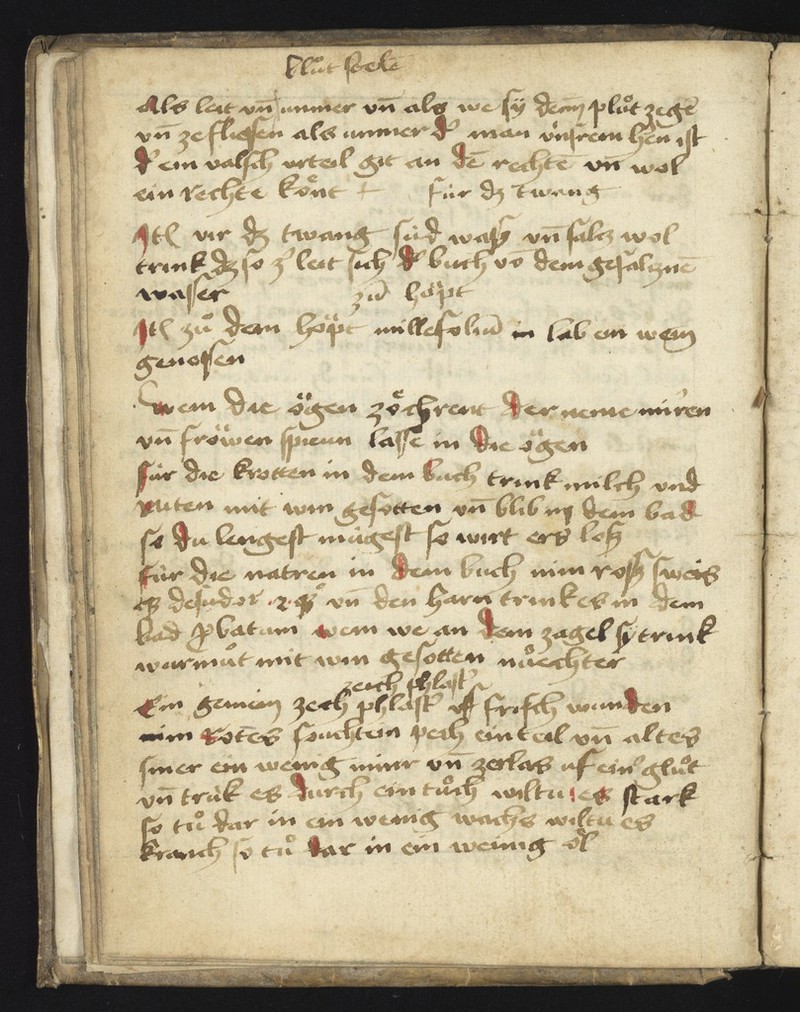 blůt stele
Als leit vn̄ immer vn̄ als we sÿ dem plůt zegē
vn̄ zefliessen als immer dʼ man vnsrem hēn ist
dʼ ein valsch vrteil git an dē rechtē vn̄ wol
ein rechte kont + für dz twang
Itē vir dz twang süd wasſ vn̄ saltz wol
trink dz so leit sich dʼ buch vō dem gesaltznē
wasser zū höpt
Itē zů dem höpt millefoliū in lab en wein
genossen
Wem die ögen zöchrent der neme
vn̄ fröwen lasse in die ögen
für die krotten in dem buch trink milch vnd
ruten mit win gesotten vn̄ blib in dem bad
so du lengest mügest so wirt ers loſz
für die natren in dem buch nim roſſ sweis
vn̄ den harn trink es in dem
bad ꝓbatum wem we an dem zagel sÿ trink
warmůt mit win gesotten nuechter
zech phlastʼ
Ein gemein zech phlastʼ uff frisch wunden
nim rotes pech ein teil vn̄ altes
smer ein wenig minr vn̄ zerlas uf einʼ glůt
vn̄ truk es durch ein tůch wiltu es stark
so tů dar in ein wenig wachs wiltu es
kranch so tů dar in ein wenig öl